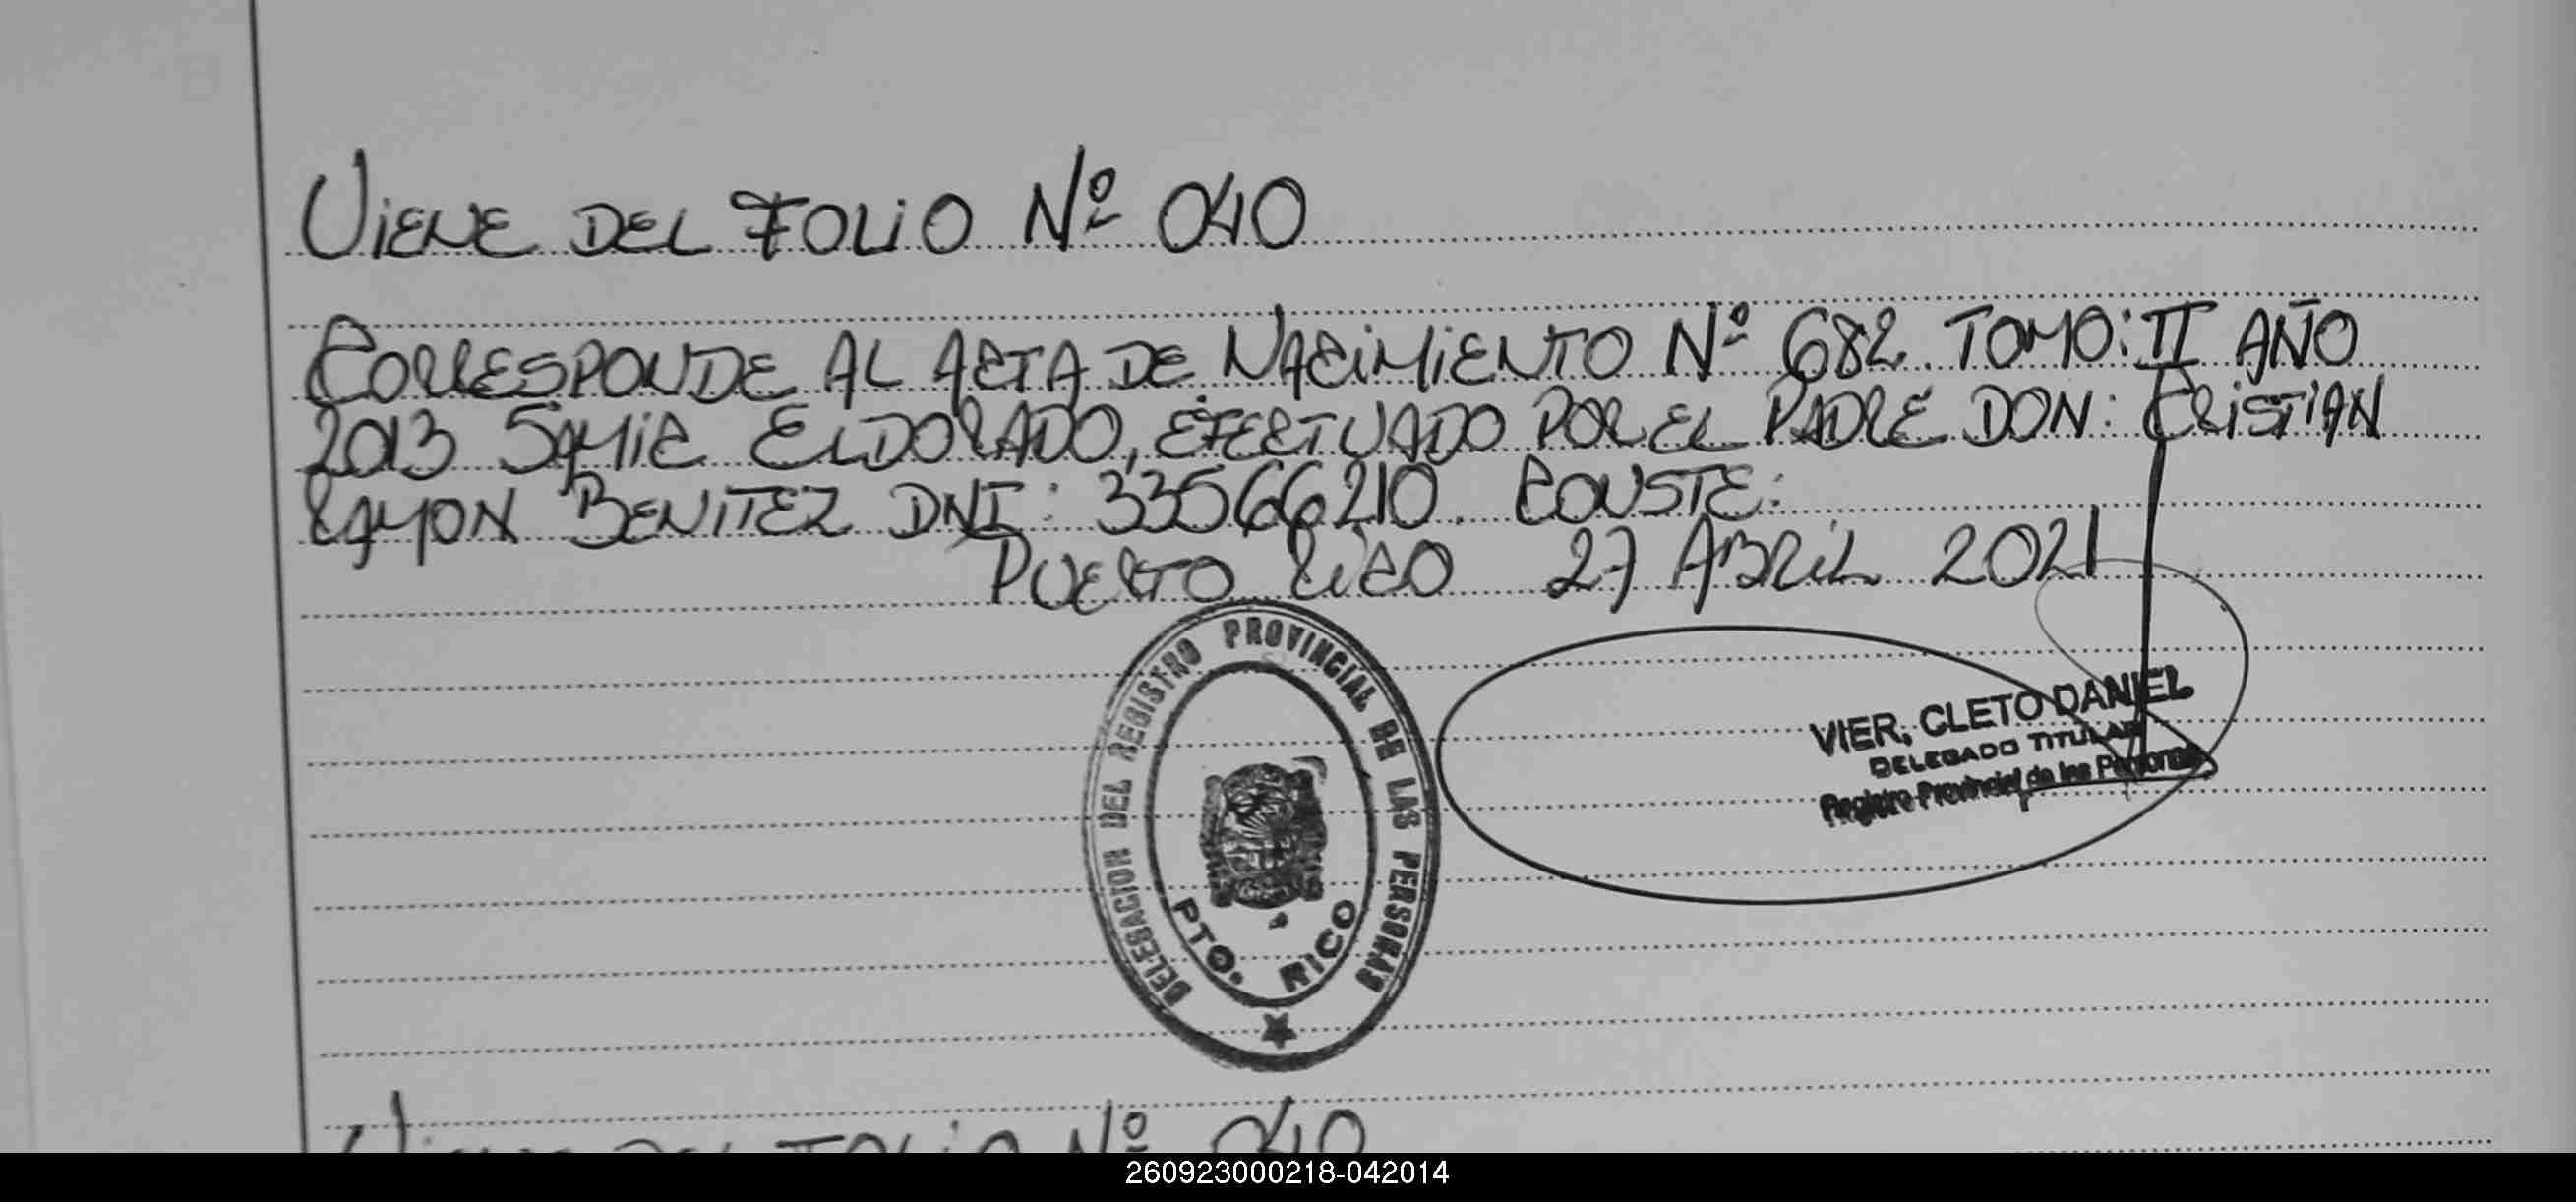 VIENE DEL FOLIO Nº 040
CORRESPONDE AL ACTA DE NACIMIENTO Nº 682. TOMO: II AÑO
2013 SAMIC ELDORADO, EFECTUADO POR EL PADRE DON: CRISTIAN
RAMON BENITEZ DNI: 33566210. CONSTE:
PUERTO RICO 27 ABRIL 2021
DELEGACION DEL REGISTRO PROVINCIAL DE LAS PERSONAS
PTO. RICO
VIER, CLETO DANIEL
DELEGADO TITULAR
Registro Provincial de las Personas
VIENE DEL FOLIO Nº 040
260923000218-042014